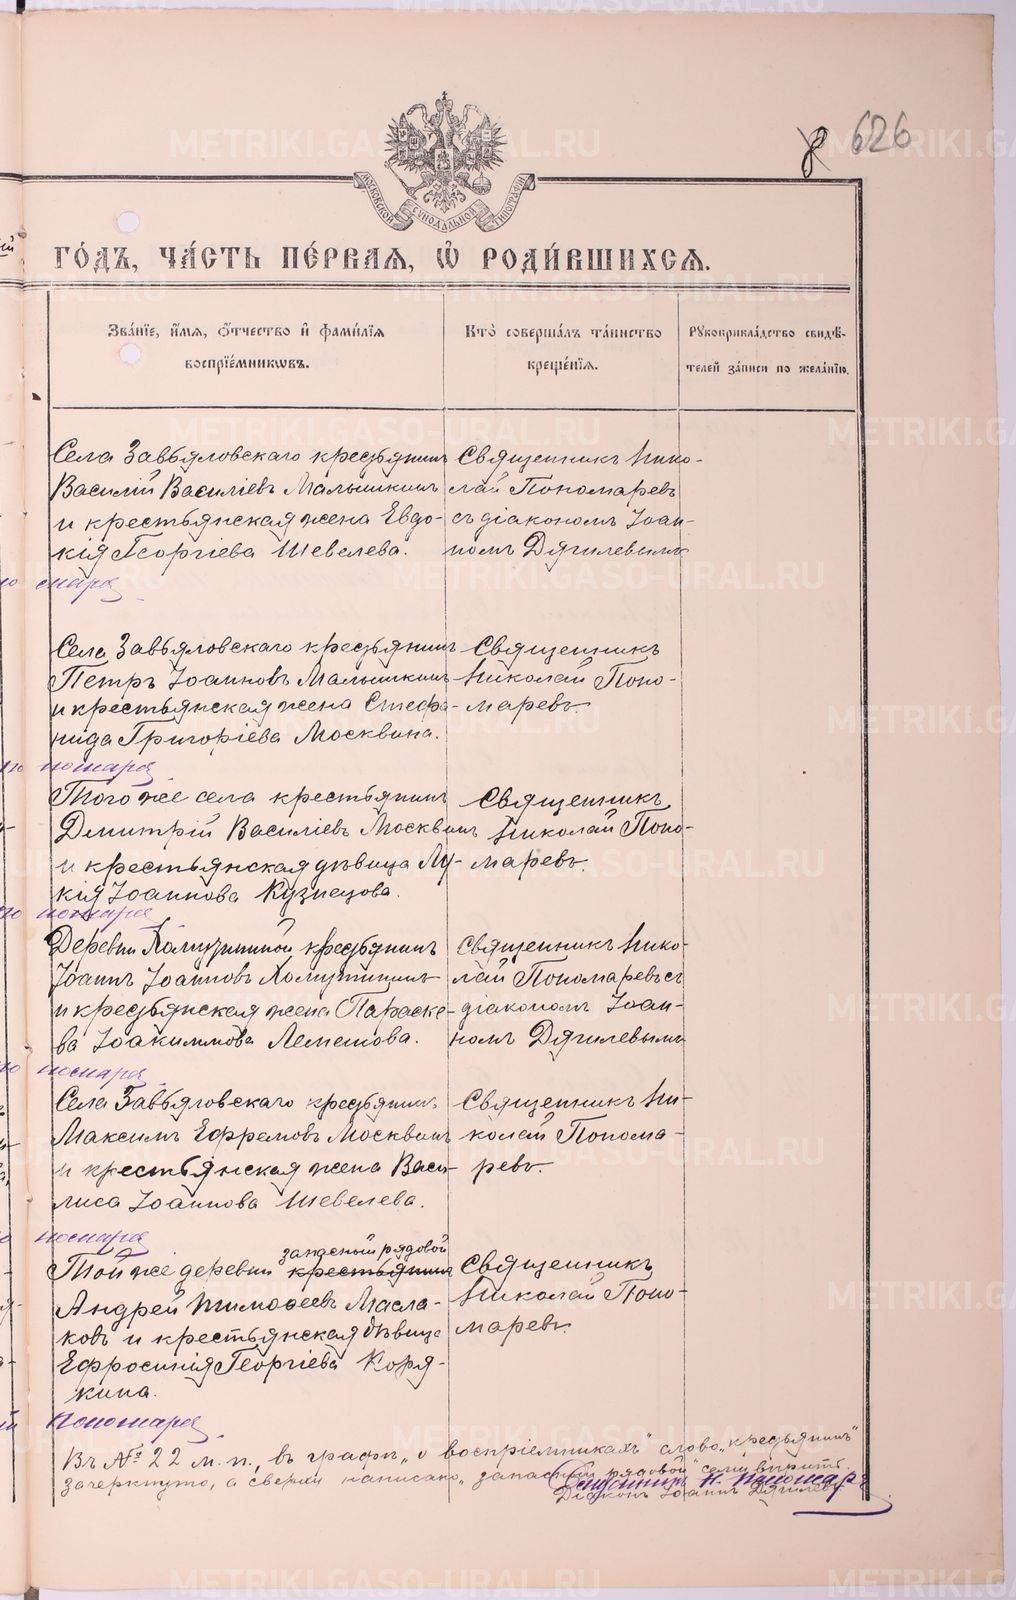 626
МОСКОВСКОЙ СѴНОДАЛЬНОЙ ТИПОГРАФІИ
ГО́ДЪ, ЧА́СТЬ ПЕ́РВАЯ, Ѿ РОДИ́ВШИХСЯ.
Зва́нїе, и́мѧ, о́тчество и҆ фамилїѧ
воспрїе́мникѡвъ.
Кто̀ соверша́лъ та́инство
креще́нїѧ.
Рꙋкоприкла́дство свидѣ́-
телей за́писи по жела́нїю.
Села Завьяловскаго крестьянинъ
Василій Василіевъ Малышкинъ
и крестьянская жена Евдо-
кія Георгіева Шевелева.
Священникъ Нико-
лай Пономаревъ
съ діакономъ Іоан-
номъ Дягилевымъ
Села Завьяловскаго крестьянинъ
Петръ Іоанновъ Малышкинъ
и крестьянская жена Стефа-
нида Григоріева Москвина.
Священникъ
Николай Поно-
маревъ.
Того же села крестьянинъ
Димитрій Василіевъ Москвинъ
и крестьянская дѣвица Лу-
кія Іоаннова Кузнецова.
Священникъ
Николай Поно-
маревъ.
Деревни крестьянинъ
Іоаннъ Іоанновъ
и крестьянская жена Параске-
ва Іоакимова Лемешова.
Священникъ Нико-
лай Пономаревъ съ
діакономъ Іоан-
номъ Дягилевымъ
Села Завьяловскаго крестьянинъ
Максимъ Ефремовъ Москвинъ
и крестьянская жена Васи-
лиса Іоаннова Шевелева.
Священникъ Ни-
колай Понома-
ревъ.
запасный рядовой
Той же деревни крестьянинъ
Андрей Тимоѳеевъ Масла-
ковъ и крестьянская дѣвица
Ефросинія Георгіева Коря-
кина.
Священникъ
Николай Поно-
маревъ.
Пономарев
Въ № 22 м. п., въ графѣ „о воспріемникахъ" слово „крестьянинъ"
зачеркнуто, а сверху написано „запасный рядовой" сему вѣрить.
Священникъ Н. Пономарев
Діаконъ Іоаннъ Дягилевъ
METRIKI.GASO-URAL.RU